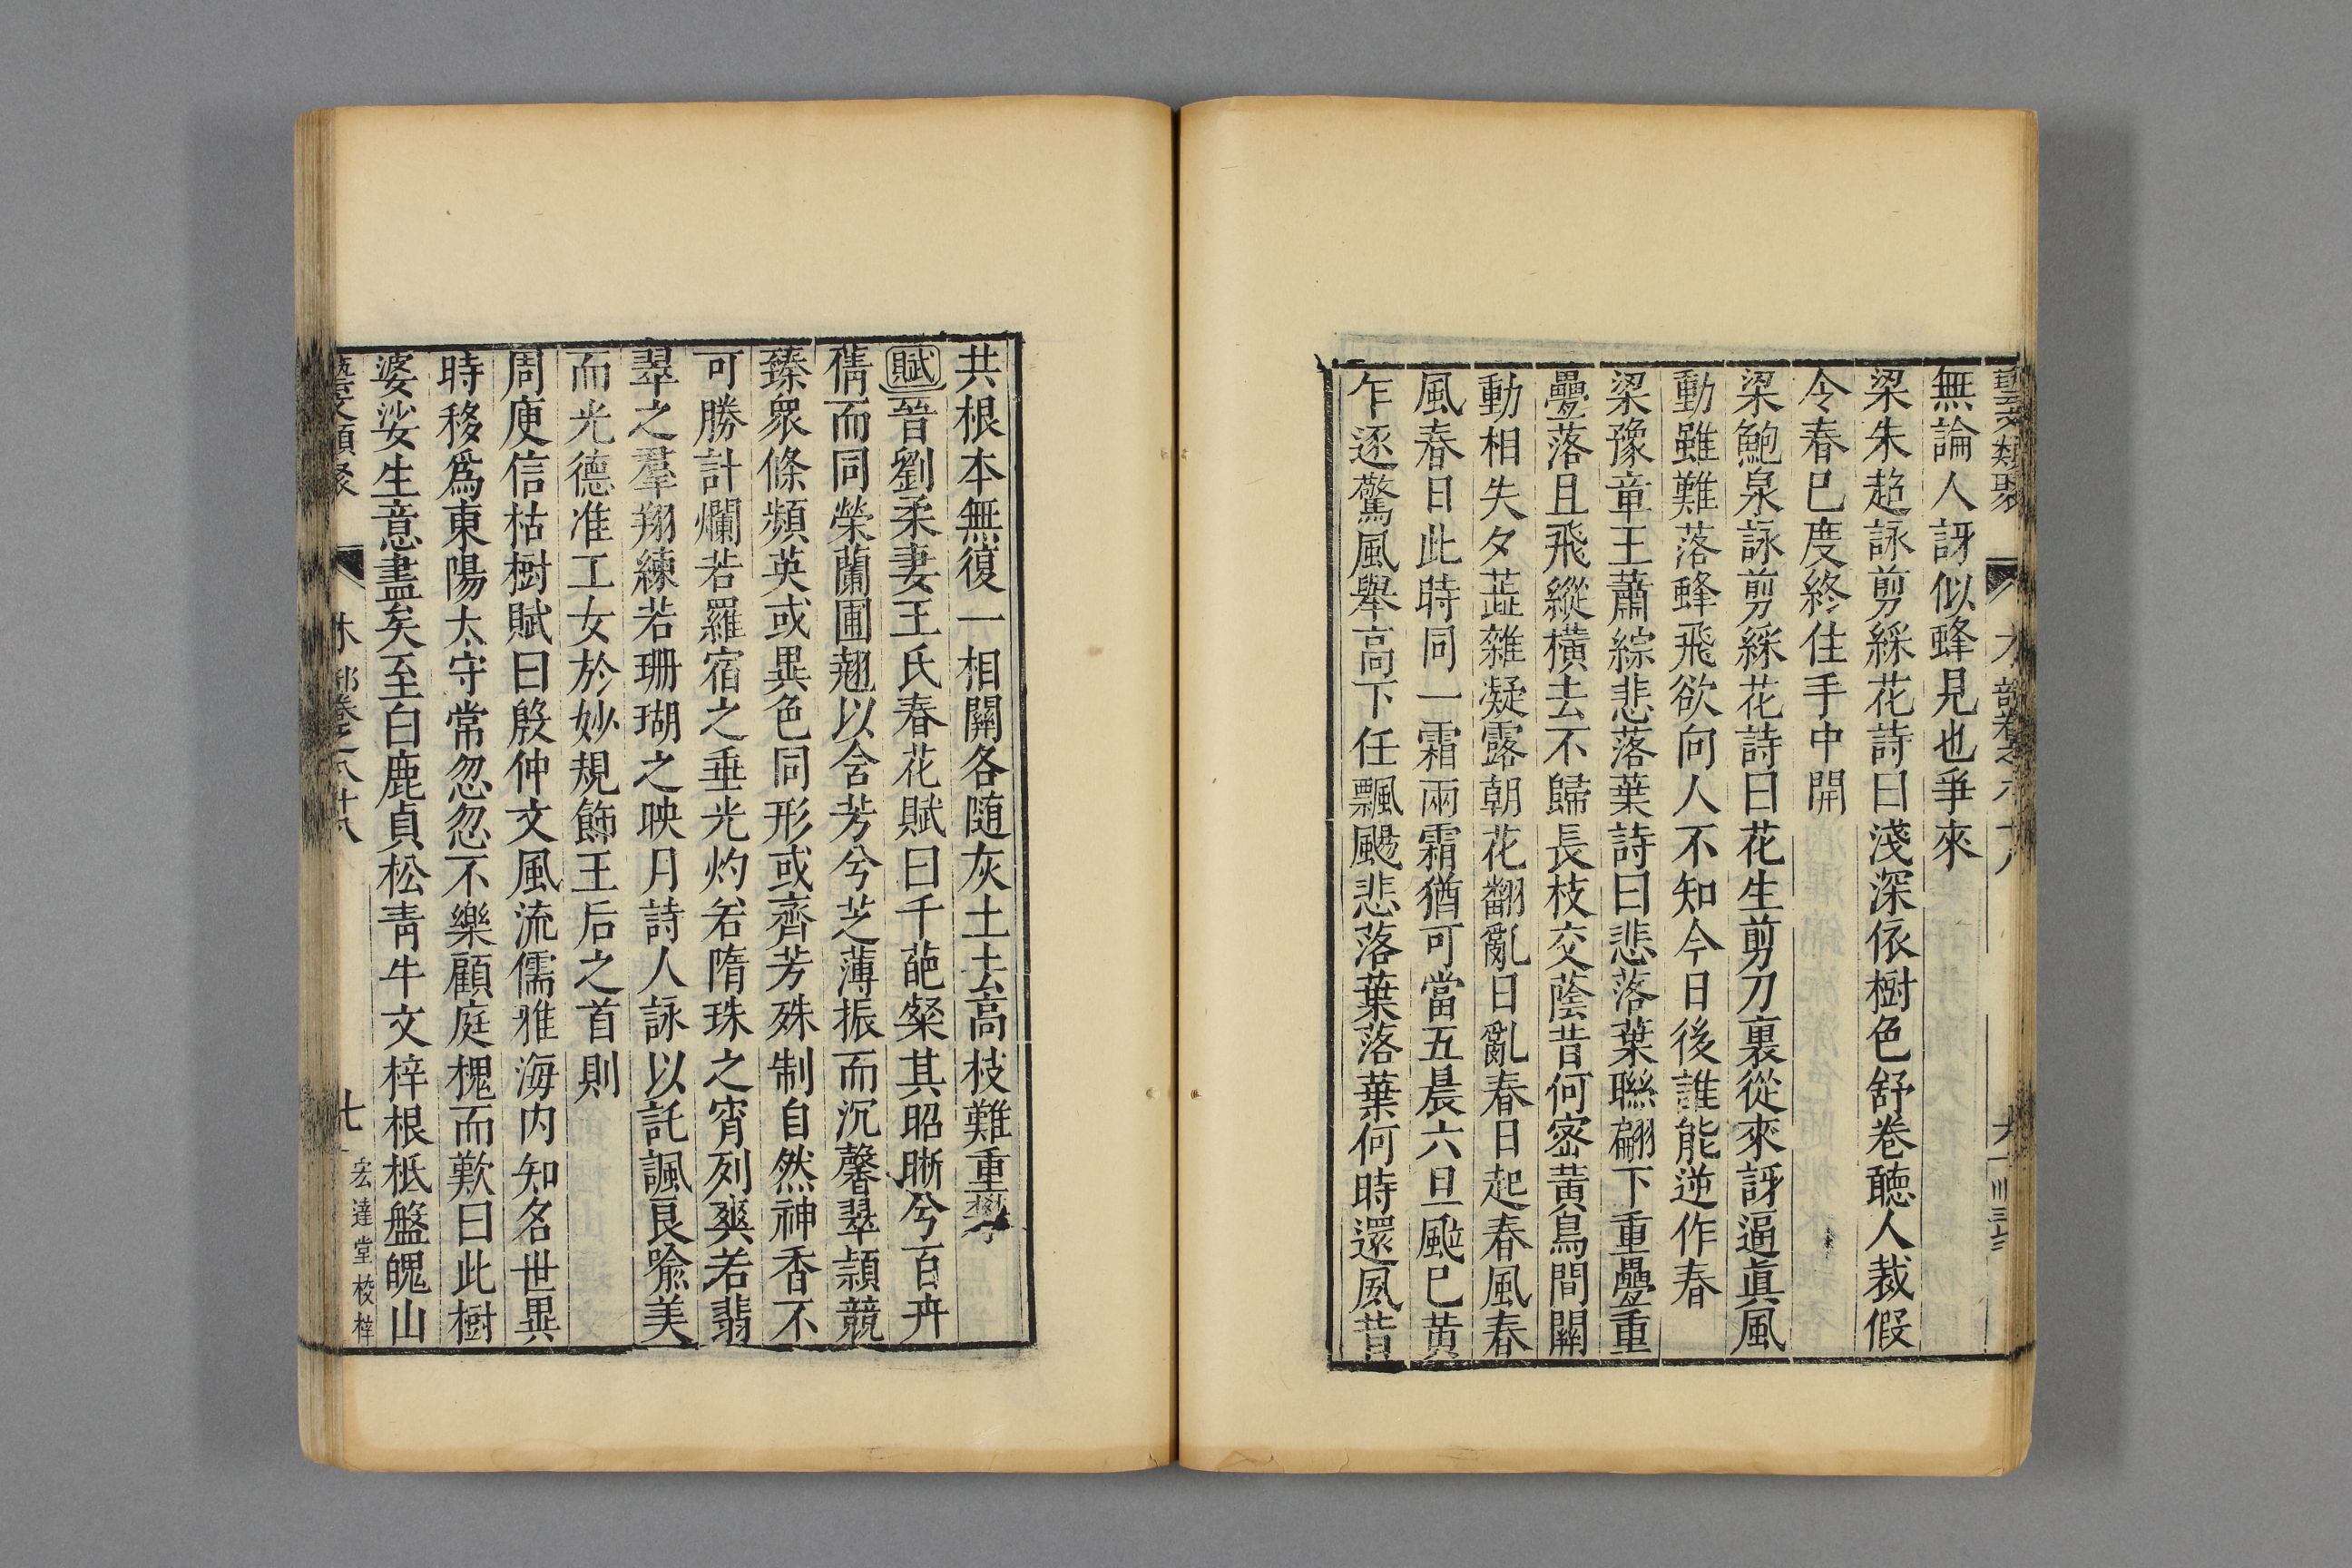 藝文類聚 木部卷之八十八
無論人訝似蜂見也爭來
梁朱超詠剪綵花詩曰淺深依樹色舒卷聽人裁假
令春已度終住手中開
梁鮑泉詠剪綵花詩曰花生剪刀裏從來訝逼眞風
動雖難落蜂飛欲向人不知今日後誰能逆作春
梁豫章王蕭綜悲落葉詩曰悲落葉聯翩下重疊重
疊落且飛縱橫去不歸長枝交蔭昔何密黃鳥間關
動相失夕蘂雜凝露朝花翻亂日亂春日起春風春
風春日此時同一霜兩霜猶可當五晨六旦颭已黃
乍逐驚風舉高下任飄颺悲落葉落葉何時還夙昔
共根本無復一相關各隨灰土去高枝難重攀
賦晉劉柔妻王氏春花賦曰千葩粲其昭晰兮百卉
蒨而同榮蘭圃翹以含芳兮芝薄振而沉馨翠頴競
臻衆條頻英或異色同形或齊芳殊制自然神香不
可勝計爛若羅宿之垂光灼若隋珠之宵列爽若翡
翠之羣翔練若珊瑚之映月詩人詠以託諷良喩美
而光德准工女於妙規飾王后之首則
周庾信枯樹賦曰殷仲文風流儒雅海内知名世異
時移爲東陽太守常忽忽不樂顧庭槐而歎曰此樹
婆娑生意盡矣至白鹿貞松青牛文梓根柢盤魄山
藝文類聚 木部卷之八十八 七 宏達堂校梓